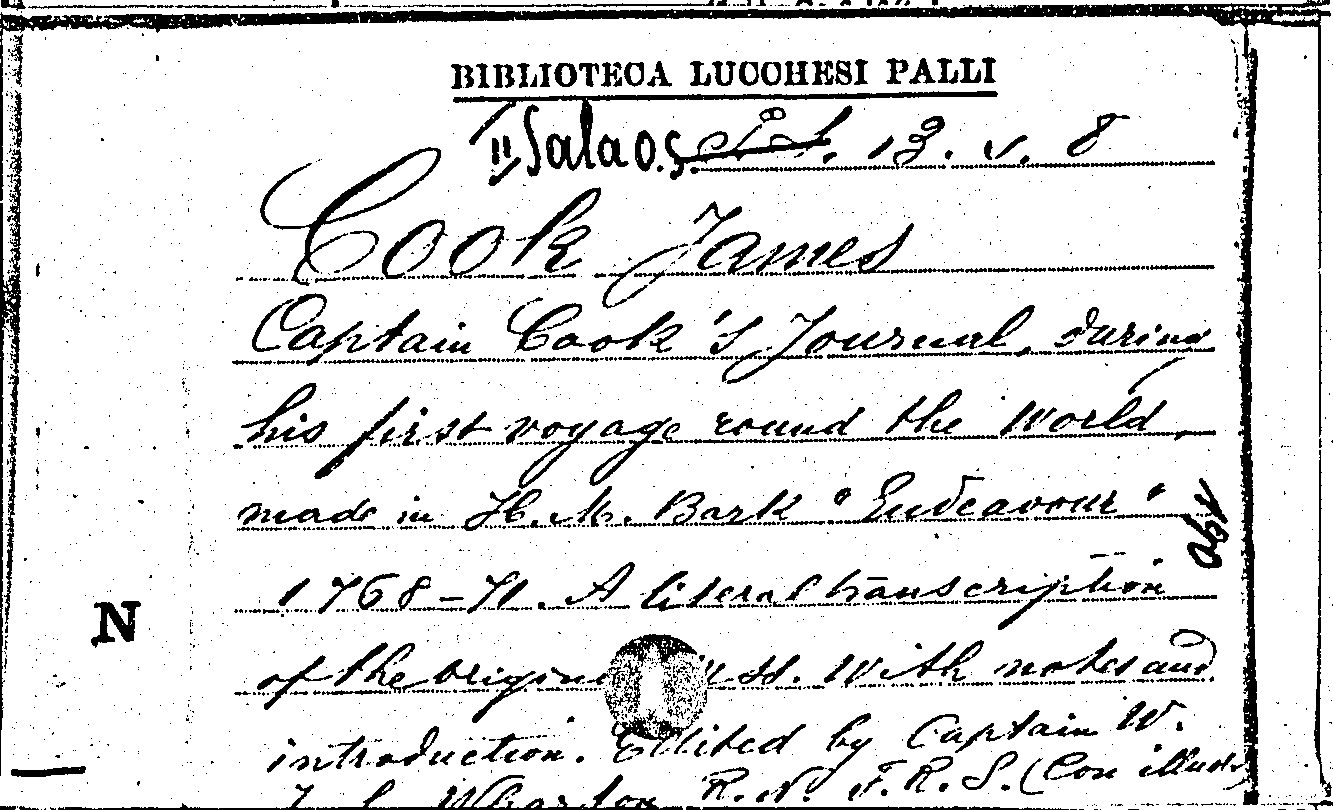 BIBLIOTECA LUCCHESI PALLI
II Sala o.s. 13. v. 8
Cook James
Captain Cook's Journal, during
his first voyage round the World,
made in H. M. Bark "Endeavour"
1768-71. A literal transcription
N
of the original Mss. With notes and
introduction. Edited by Captain W.
Wharton R. N. F. R. S. (Con illustr